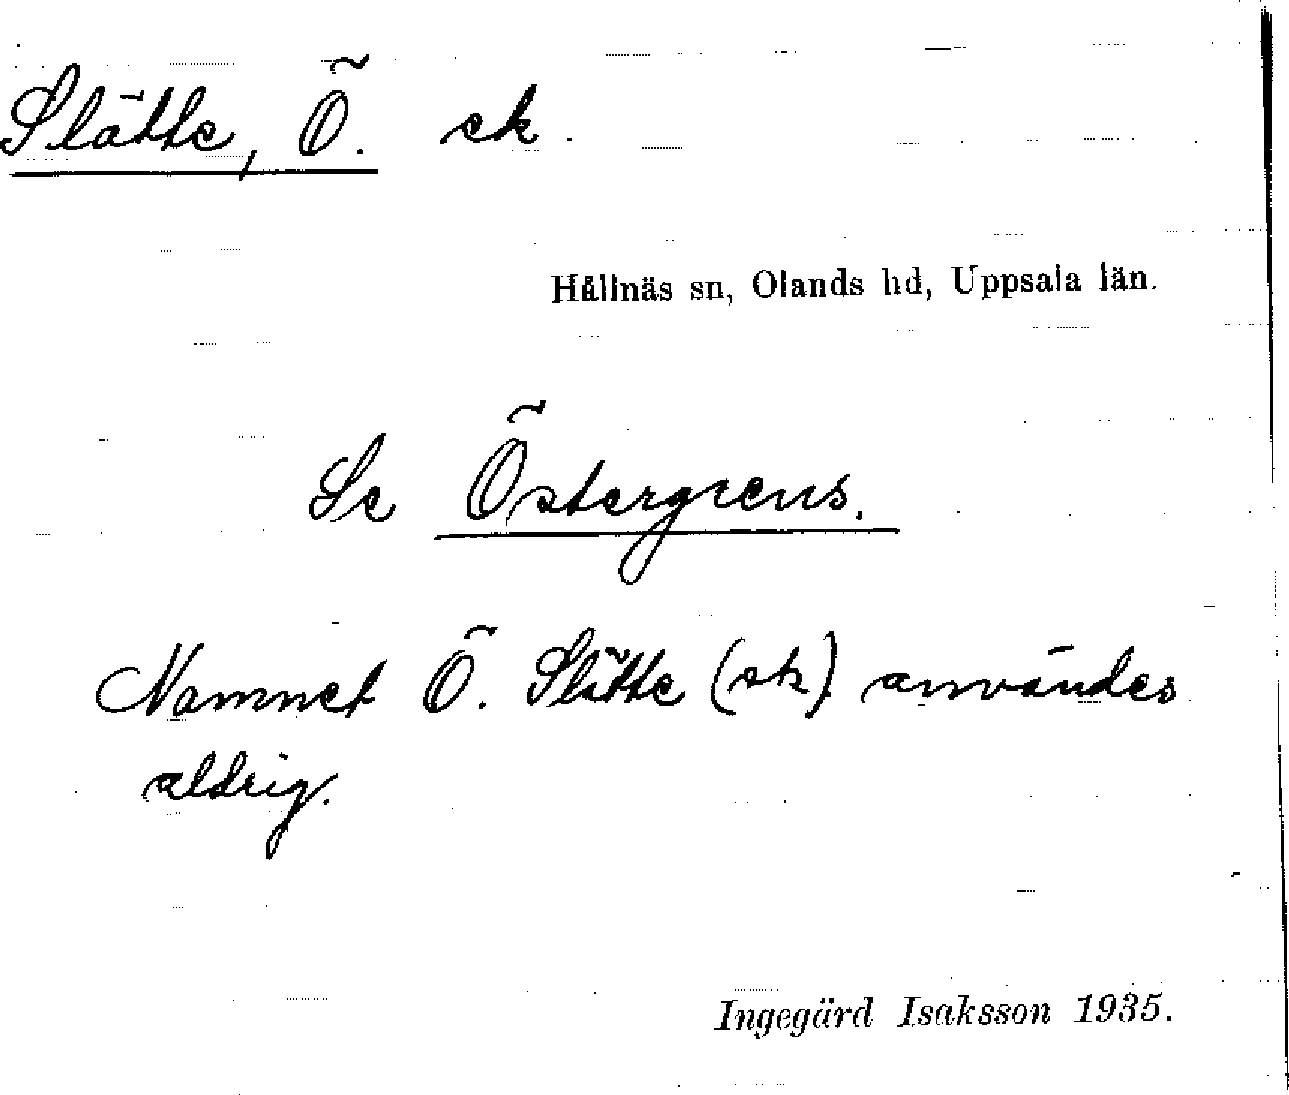 Slätte, Ö. ek.
Hållnäs sn, Olands hd, Uppsala län.
Se Östergrens.
Namnet Ö. Slätte (ek) användes
aldrig.
Ingegärd Isaksson 1935.